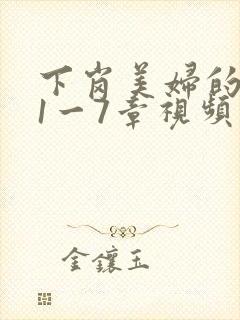 下岗美婦的
1一7章視頻
金鑲玉